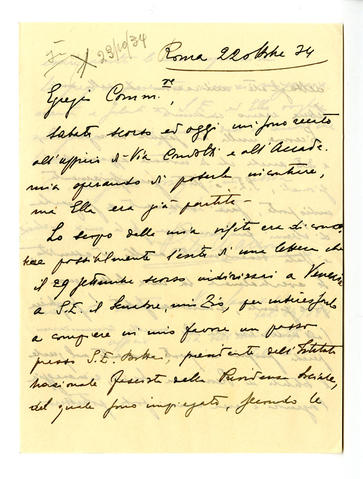 29/10/34
Roma 22 ottobre 34
Egregio Comm.re,
sabato scorso ed oggi, mi sono recato
all'ufficio di Via Condotti e all'Accade-
mia sperando di poterLa incontrare,
ma Ella era già partita -
Lo scopo della mia visita era di conos-
cere possibilmente l'esito di una lettera che
il 29 settembre scorso indirizzai a Venezia
a S.E. il Senatore, mio Zio, per interessarlo
a compiere in mio favore un passo
presso S.E. presidente dell'Istituto
Nazionale Fascista della Previdenza Sociale,
del quale sono impiegato, secondo le